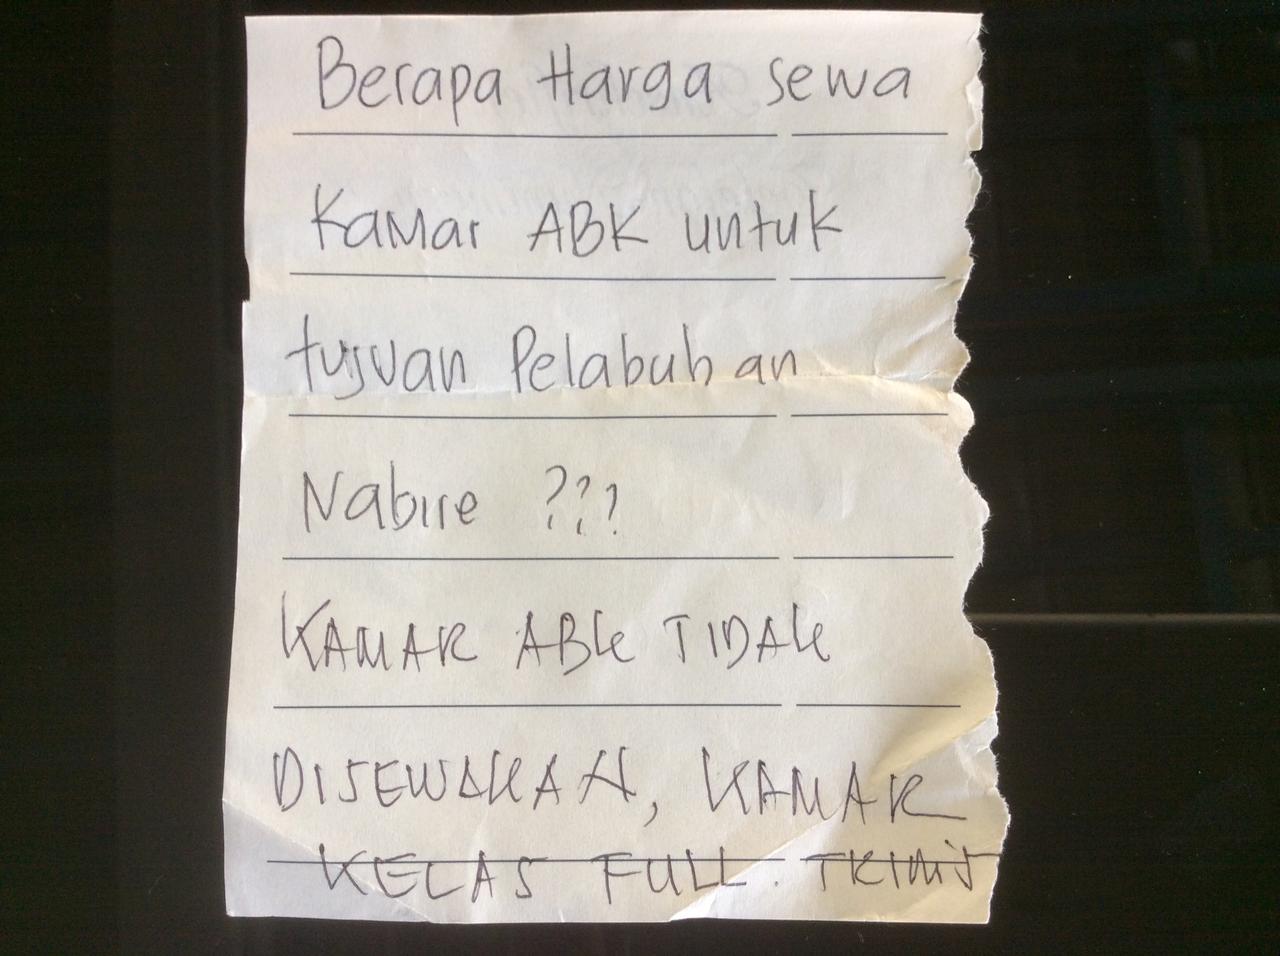 Berapa Harga sewa
Kamar ABK untuk
tujuan Pelabuhan
Nabire ???
KAMAR ABK TIDAK
DISEWAKAN, KAMAR
KELAS FULL. TRIMS